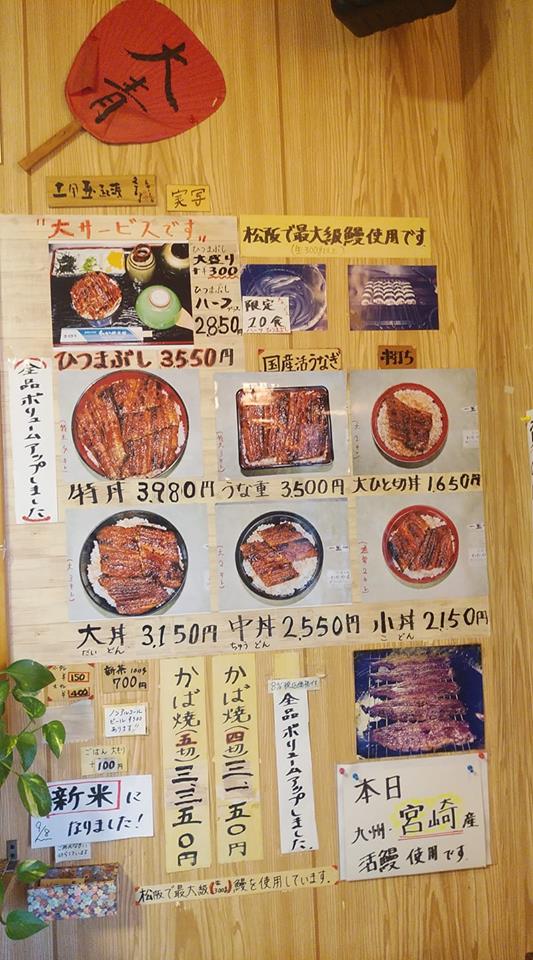 大青
実写
"大サービスです"
松阪で最大級鰻使用です
ひつまぶし
大盛り
+¥300
ひつまぶし
ハーフ
2,850円
限定
20食
ひつまぶし 3550円
国産活うなぎ
串打ち
全品ボリュームアップしました
特丼 3,980円
うな重 3,500円
大ひと切丼 1,650円
大丼 3,150円
だい どん
中丼 2,550円
ちゅう どん
小丼 2,150円
こ どん
150
400
新米 100g
700円
ノンアルコール
ビール ¥300
あります!!
ごはん 大もり
+100円
新米に
9/8 なりました!
かば焼(五切)三三五〇円
かば焼(四切)三一五〇円
8%税込価格です
全品ボリュームアップしました
本日
九州・宮崎産
活鰻使用です
松阪で最大級(生300g)鰻を使用しています.